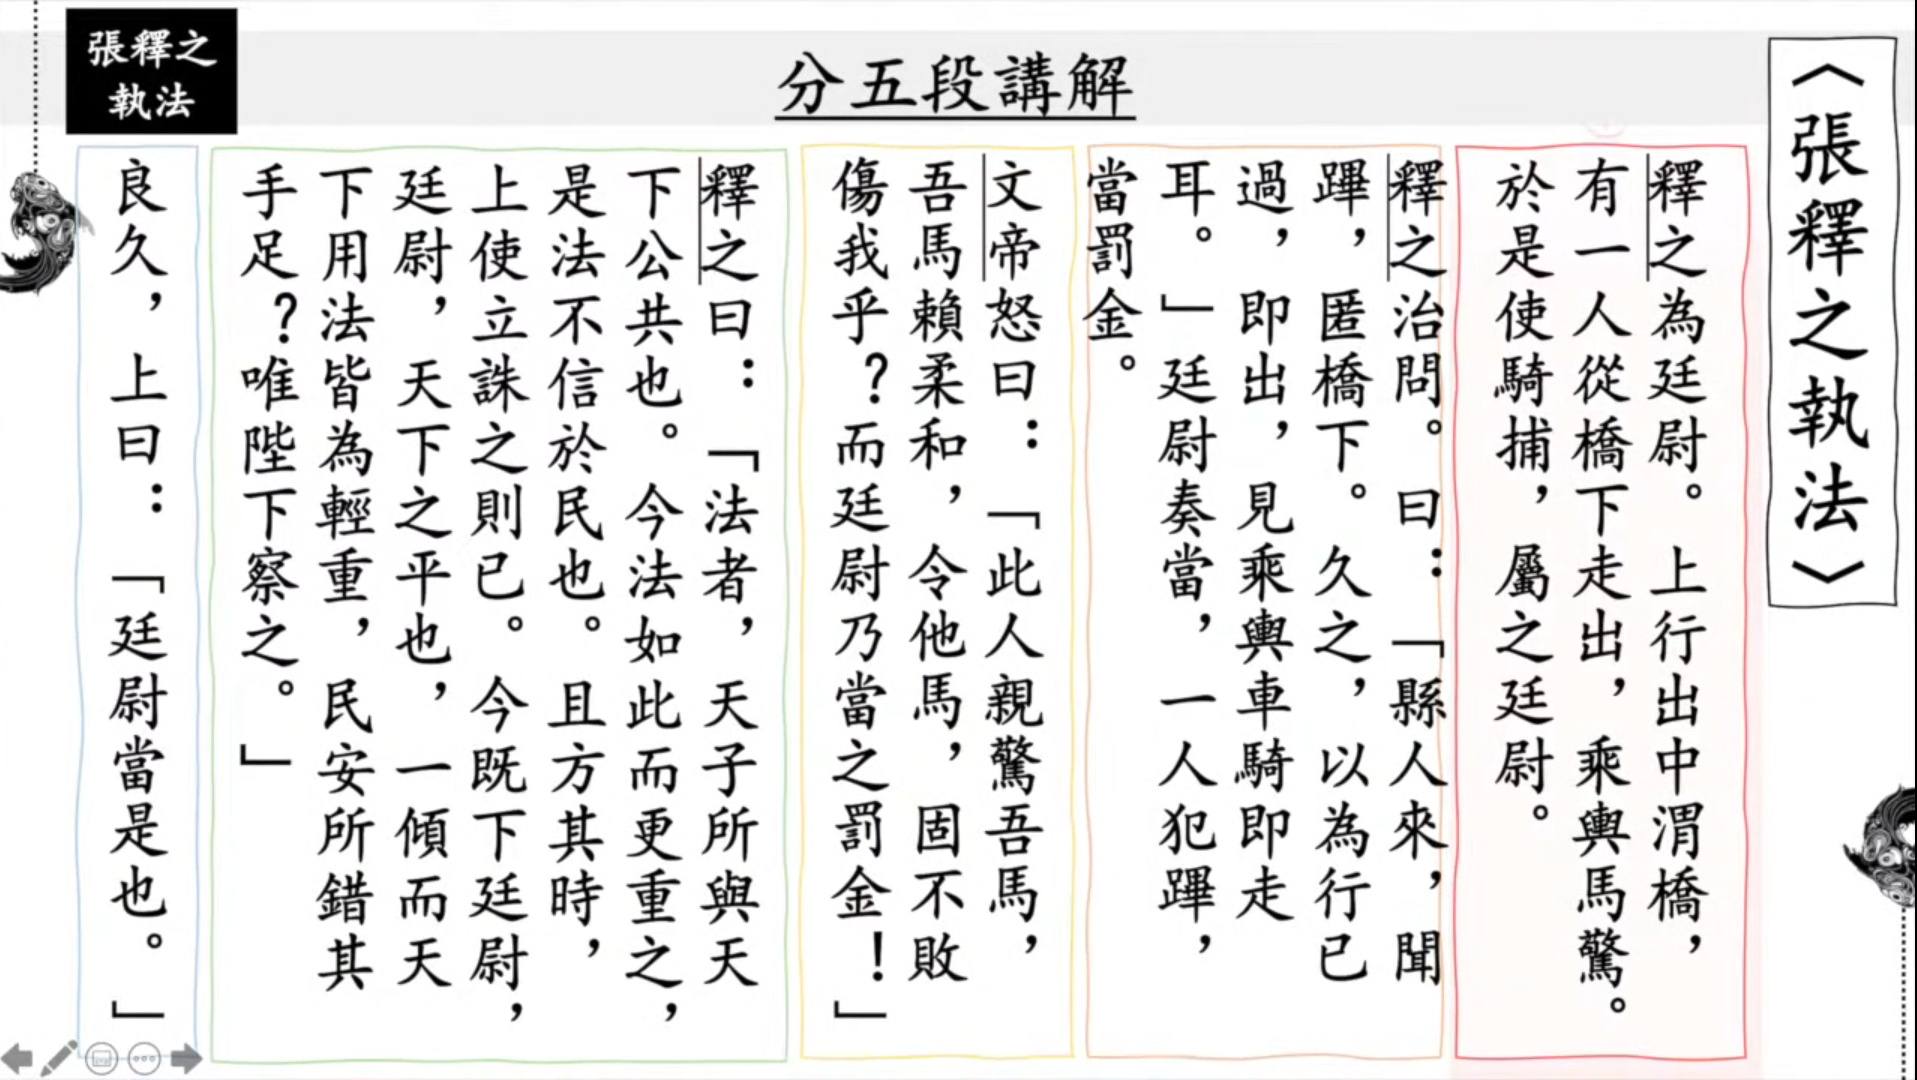 張釋之
執法
分五段講解
〈張釋之執法〉
釋之為廷尉。上行出中渭橋，
有一人從橋下走出，乘輿馬驚。
於是使騎捕，屬之廷尉。
釋之治問。曰：「縣人來，聞
蹕，匿橋下。久之，以為行已
過，即出，見乘輿車騎即走
耳。」廷尉奏當，一人犯蹕，
當罰金。
文帝怒曰：「此人親驚吾馬，
吾馬賴柔和，令他馬，固不敗
傷我乎？而廷尉乃當之罰金！」
釋之曰：「法者，天子所與天
下公共也。今法如此而更重之，
是法不信於民也。且方其時，
上使立誅之則已。今既下廷尉，
廷尉，天下之平也，一傾而天
下用法皆為輕重，民安所錯其
手足？唯陛下察之。」
良久，上曰：「廷尉當是也。」